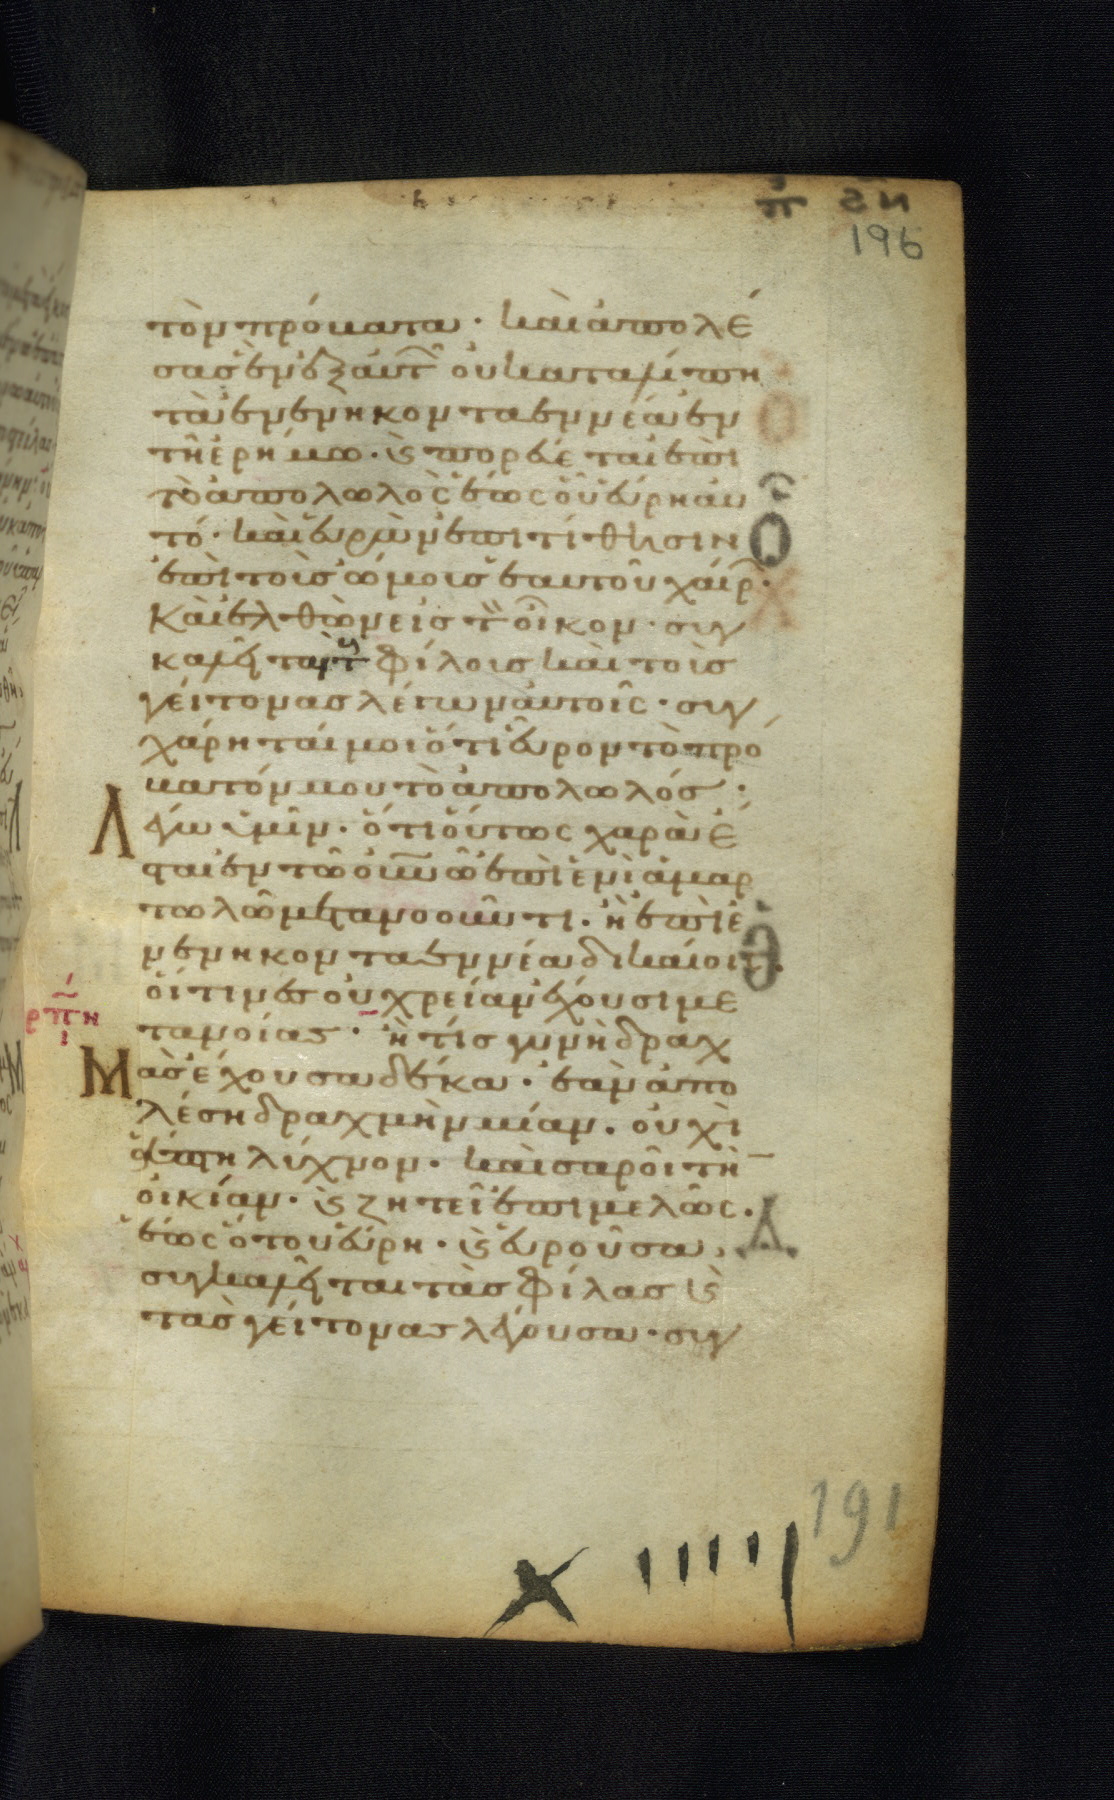 π ϛη
196
τὸν πρόβατα · καὶ ἀπολέ
σας ἓν ἐξ αὐτ οὐ καταλίπη
τὰ ἐνενηκονταεννέα ἐν
τῆ ἐρήμω · ϗ πορεύεται ἐπὶ
τὸ ἀπολωλὸς ἕως οὗ εὕρη αὐ
τό · καὶ εὑρὼν ἐπιτίθησιν
ἐπὶ τοῖς ὤμοις ἑαυτοῦ χαίρ ·
καὶ ἐλθὼν εἰς τ οἶκον · συγ
καλεῖται τ φίλοις καὶ τοῖς
γείτονας λέγων αὐτοῖς · συγ
χάρηταί μοι ὅτι εὗρον τὸ πρό
βατόν μου τὸ ἀπολωλός ·
Λέγω ὑμῖν · ὅτι οὕτως χαρὰ ἔ
σται ἐν τῶ οὐνῶ ἐπὶ ἑνὶ ἁμαρ
τωλῶ μετανοοῦντι · ἢ ἐπὶ ἐ
νενηκονταεννέα δικαίοις
οἵτινες οὐ χρείαν ἔχουσι με
τανοίας · ἢ τίς γυνὴ δραχ
ρπη
ι
Μὰς ἔχουσα δέκα · ἐὰν ἀπο
λέση δραχμὴν μίαν · οὐχὶ
ἅπτη λύχνον · καὶ σαροῖ τὴ
οἰκίαν · ϗ ζητεῖ ἐπιμελῶς ·
ἕως ὅτου εὕρη · ϗ εὑροῦσα
συγκαλεῖται τὰς φίλας ϗ
τὰς γείτονας λέγουσα · συγ
191